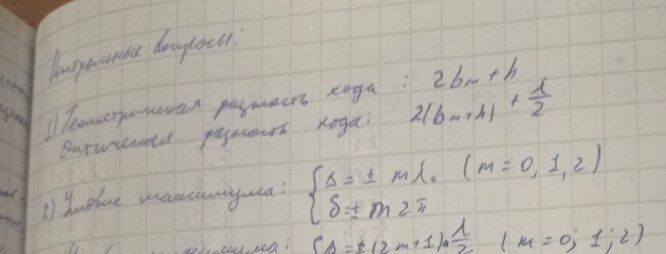 Контрольные вопросы:
1) Геометрическая разность хода: 2bm + h
Оптическая разность хода: 2(bm+h) + λ/2
2) Условие максимума: { Δ = ± mλ₀ (m = 0, 1, 2)
δ = ± m 2π
Δ = ± (2m+1) · λ/2 (m = 0; 1; 2)